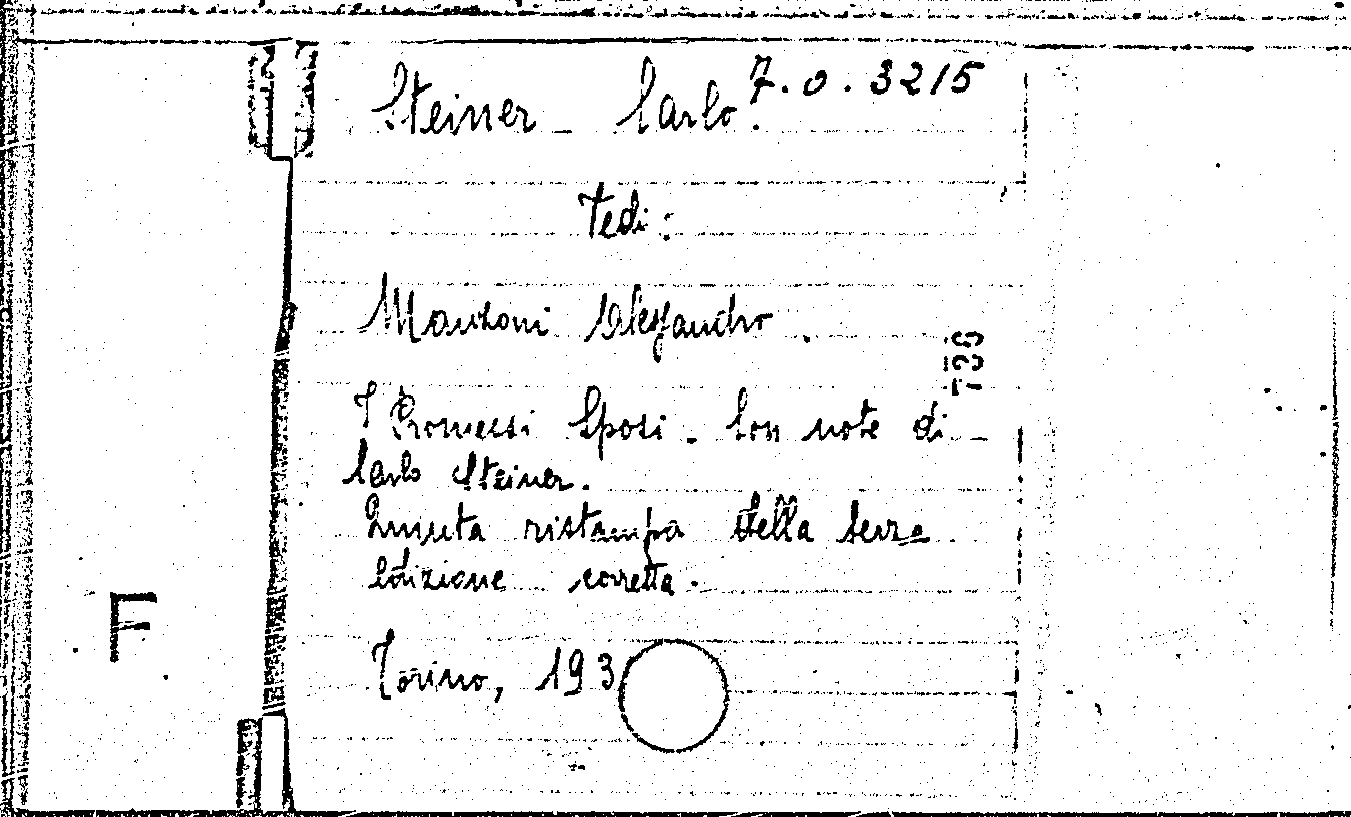 7.0.3215
Steiner Carlo.
Vedi:
Manzoni Alessandro.
I Promessi Sposi. Con note di
Carlo Steiner.
ristampa della terza
Edizione corretta.
Torino, 193
F